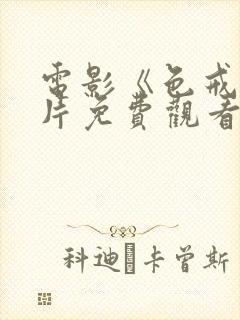 電影《色戒
片免費觀看
科迪·卡曾斯